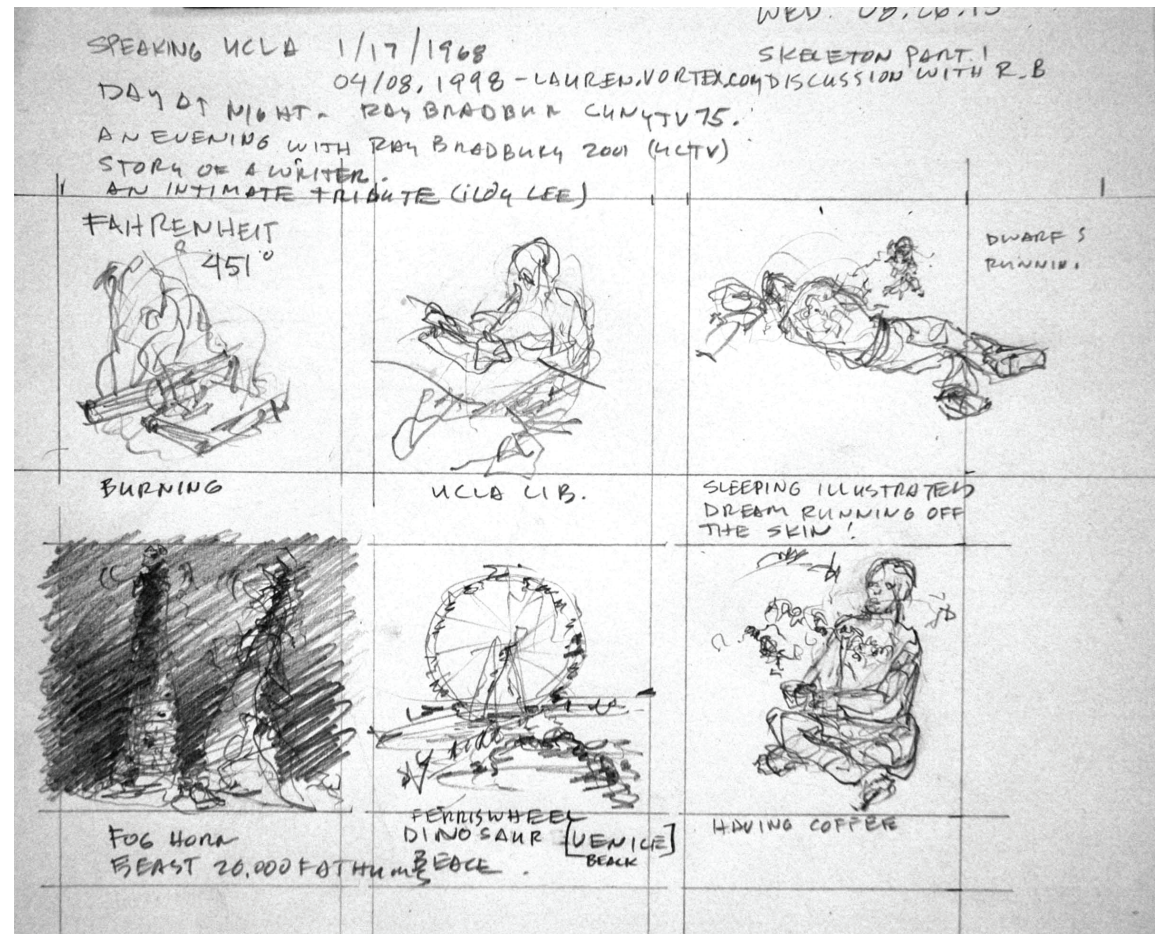 WED. 08.26.15
SPEAKING UCLA 1/17/1968
SKELETON PART.1
04/08, 1998 - LAUREN.VORTEX.COM DISCUSSION WITH R.B
DAY AT NIGHT. RAY BRADBUR CUNYTV75.
AN EVENING WITH RAY BRADBURY 2001 (UCTV)
STORY OF A WRITER.
AN INTIMATE TRIBUTE (LEE)
FAHRENHEIT
451°
DWARFS
RUNNIN.
BURNING
UCLA LIB.
SLEEPING ILLUSTRATED
DREAM RUNNING OFF
THE SKIN!
FOG HORN
BEAST 20,000 FATHUMS
FERRISWHEEL
DINOSAUR [VENICE]
BEACH
HAVING COFFEE